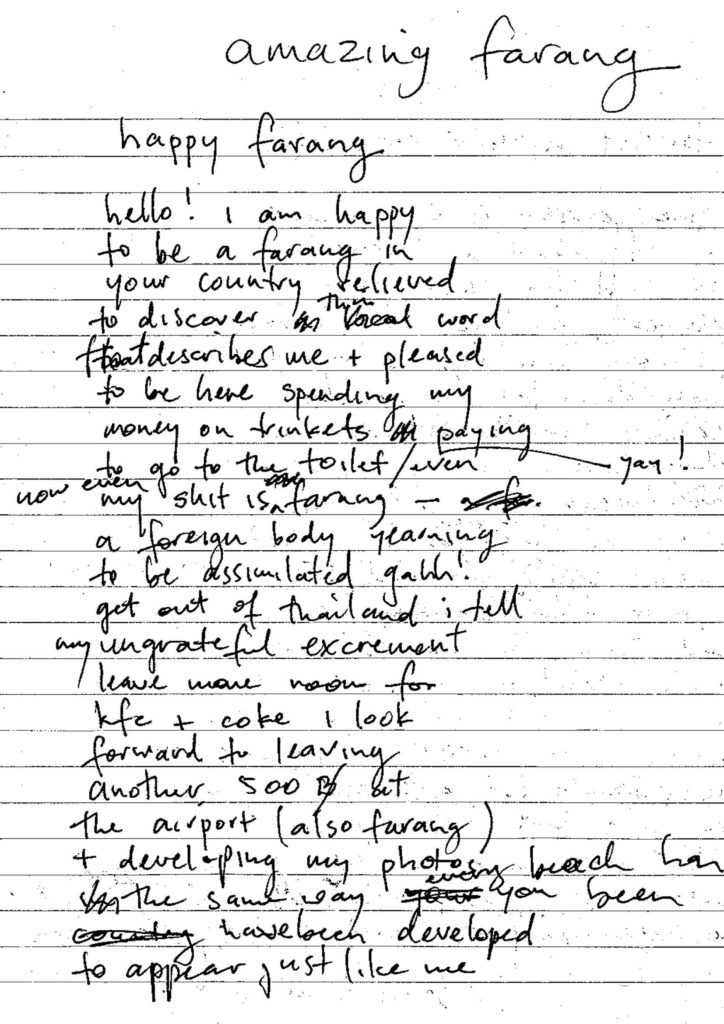 amazing farang
happy farang
hello! i am happy
to be a farang in
your country relieved
to discover the local word
that describes me + pleased
to be here spending my
money on trinkets paying
to go to the toilet/even yay!
now even my shit is farang —
a foreign body yearning
to be assimilated gahh!
get out of thailand i tell
my ungrateful excrement
leave more room for
kfc + coke i look
forward to leaving
another 500 B at
the airport (also farang)
+ developing my photos every beach has
in the same way your you been
country have been developed
to appear just like me